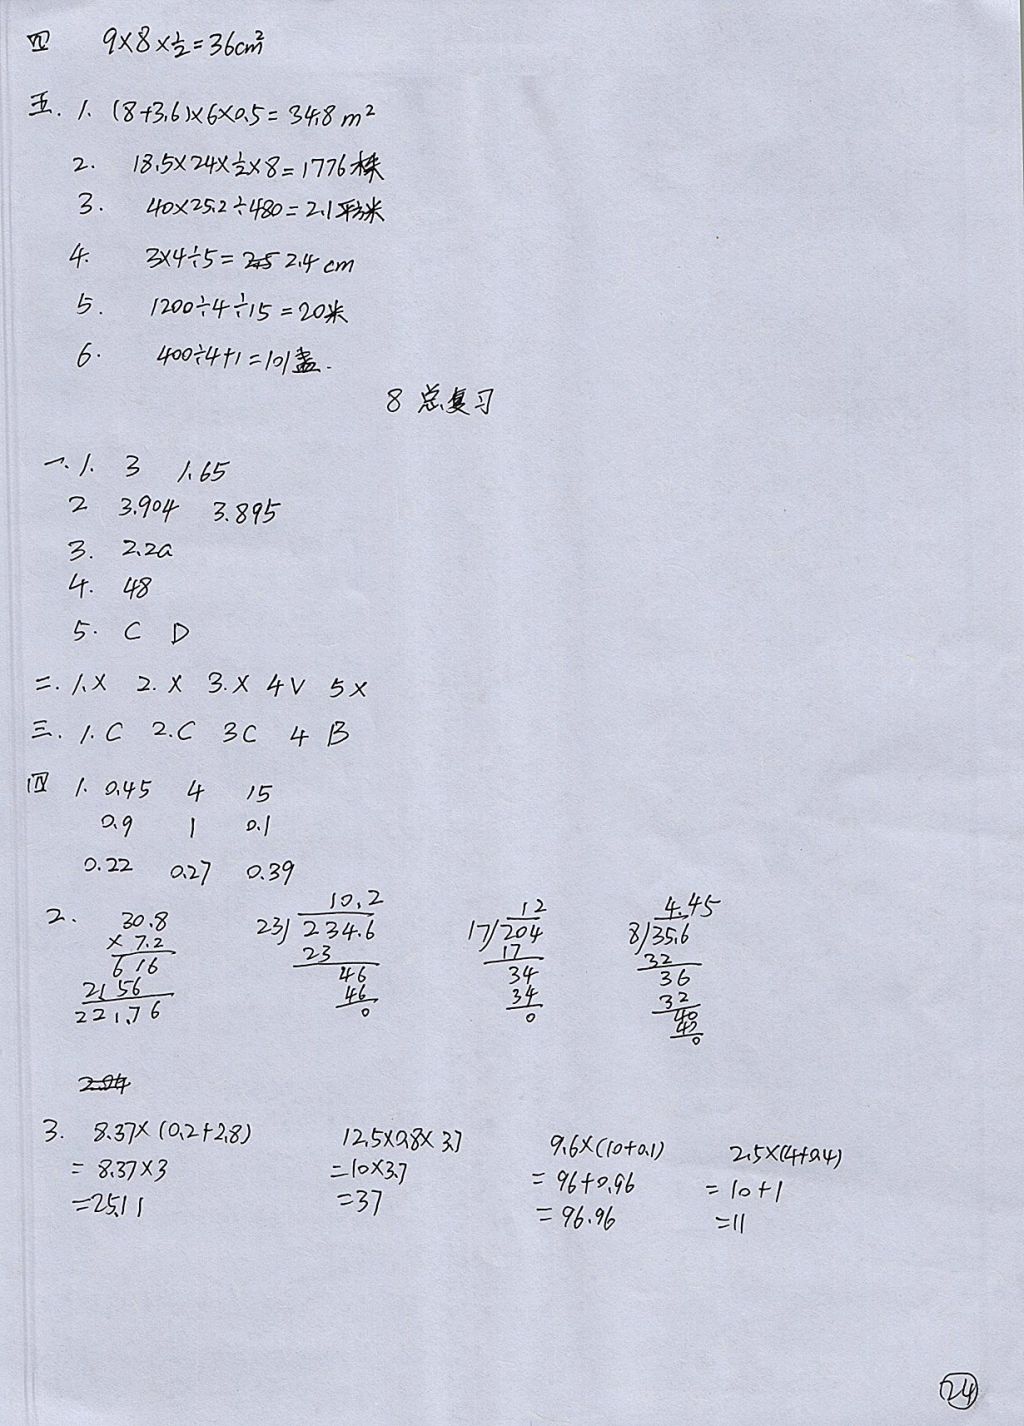 四 9×8×½=36cm²
五. 1. (8+3.6)×6×0.5=34.8m²
2. 18.5×24×½×8=1776株
3. 40×25.2÷480=2.1平方米
4. 3×4÷5=2.4cm
5. 1200÷4÷15=20米
6. 400÷4+1=101盏.
8 总复习
一.1. 3 1.65
2 3.904 3.895
3. 2.2a
4. 48
5. C D
二. 1.× 2.× 3.× 4√ 5×
三. 1.C 2.C 3C 4 B
四 1. 0.45 4 15
0.9 1 0.1
0.22 0.27 0.39
2. 30.8
× 7.2
6 16
21 56
221.76
10.2
23)234.6
23
46
46
0
12
17)204
17
34
34
0
4.45
8)35.6
32
36
32
40
40
0
3. 8.37×(0.2+2.8)
=8.37×3
=25.11
12.5×0.8×3.7
=10×3.7
=37
9.6×(10+0.1)
=96+0.96
=96.96
2.5×(4+0.4)
=10+1
=11
24